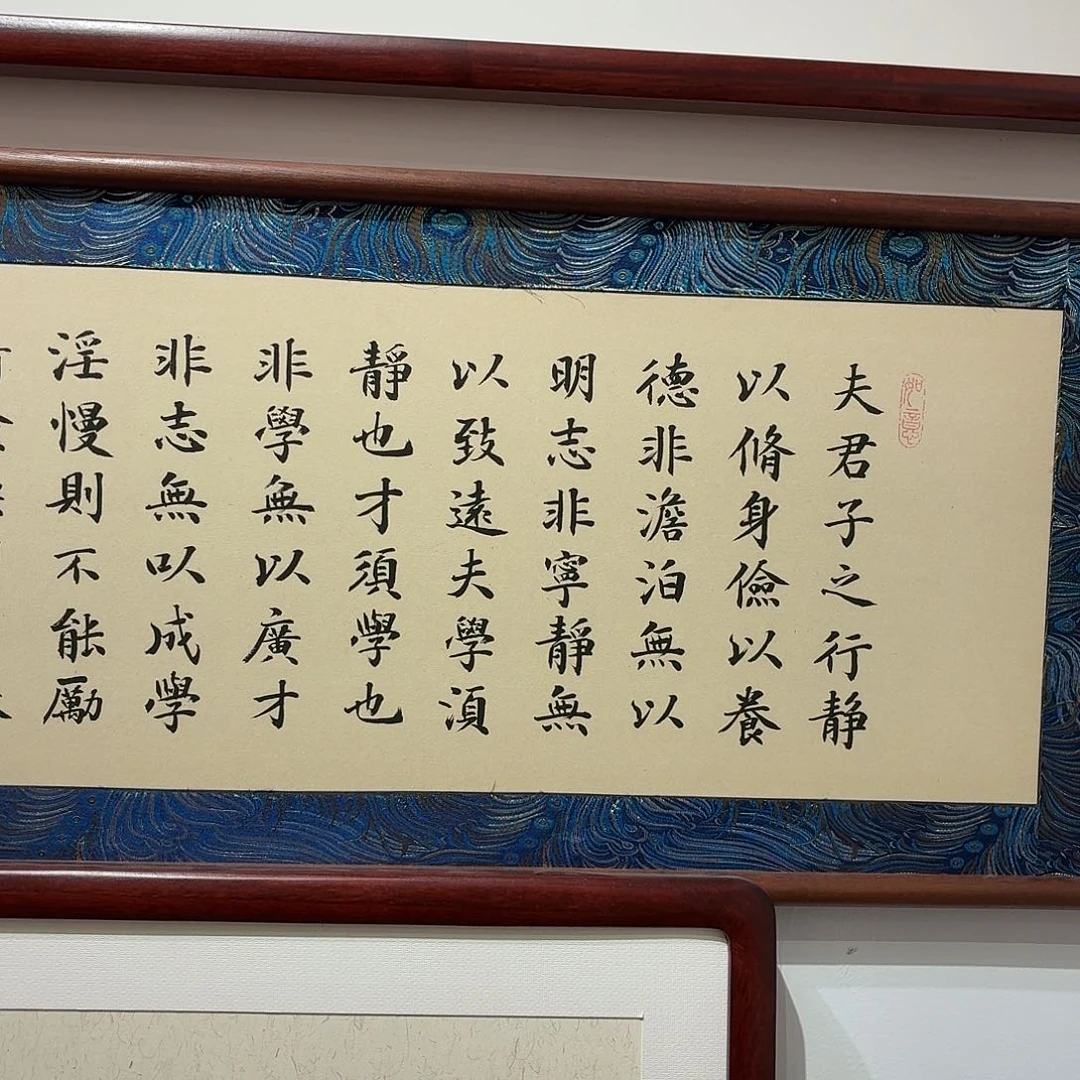 如意
夫君子之行静
以脩身儉以養
德非澹泊無以
明志非寧靜無
以致遠夫學須
靜也才須學也
非學無以廣才
非志無以成學
淫慢則不能勵